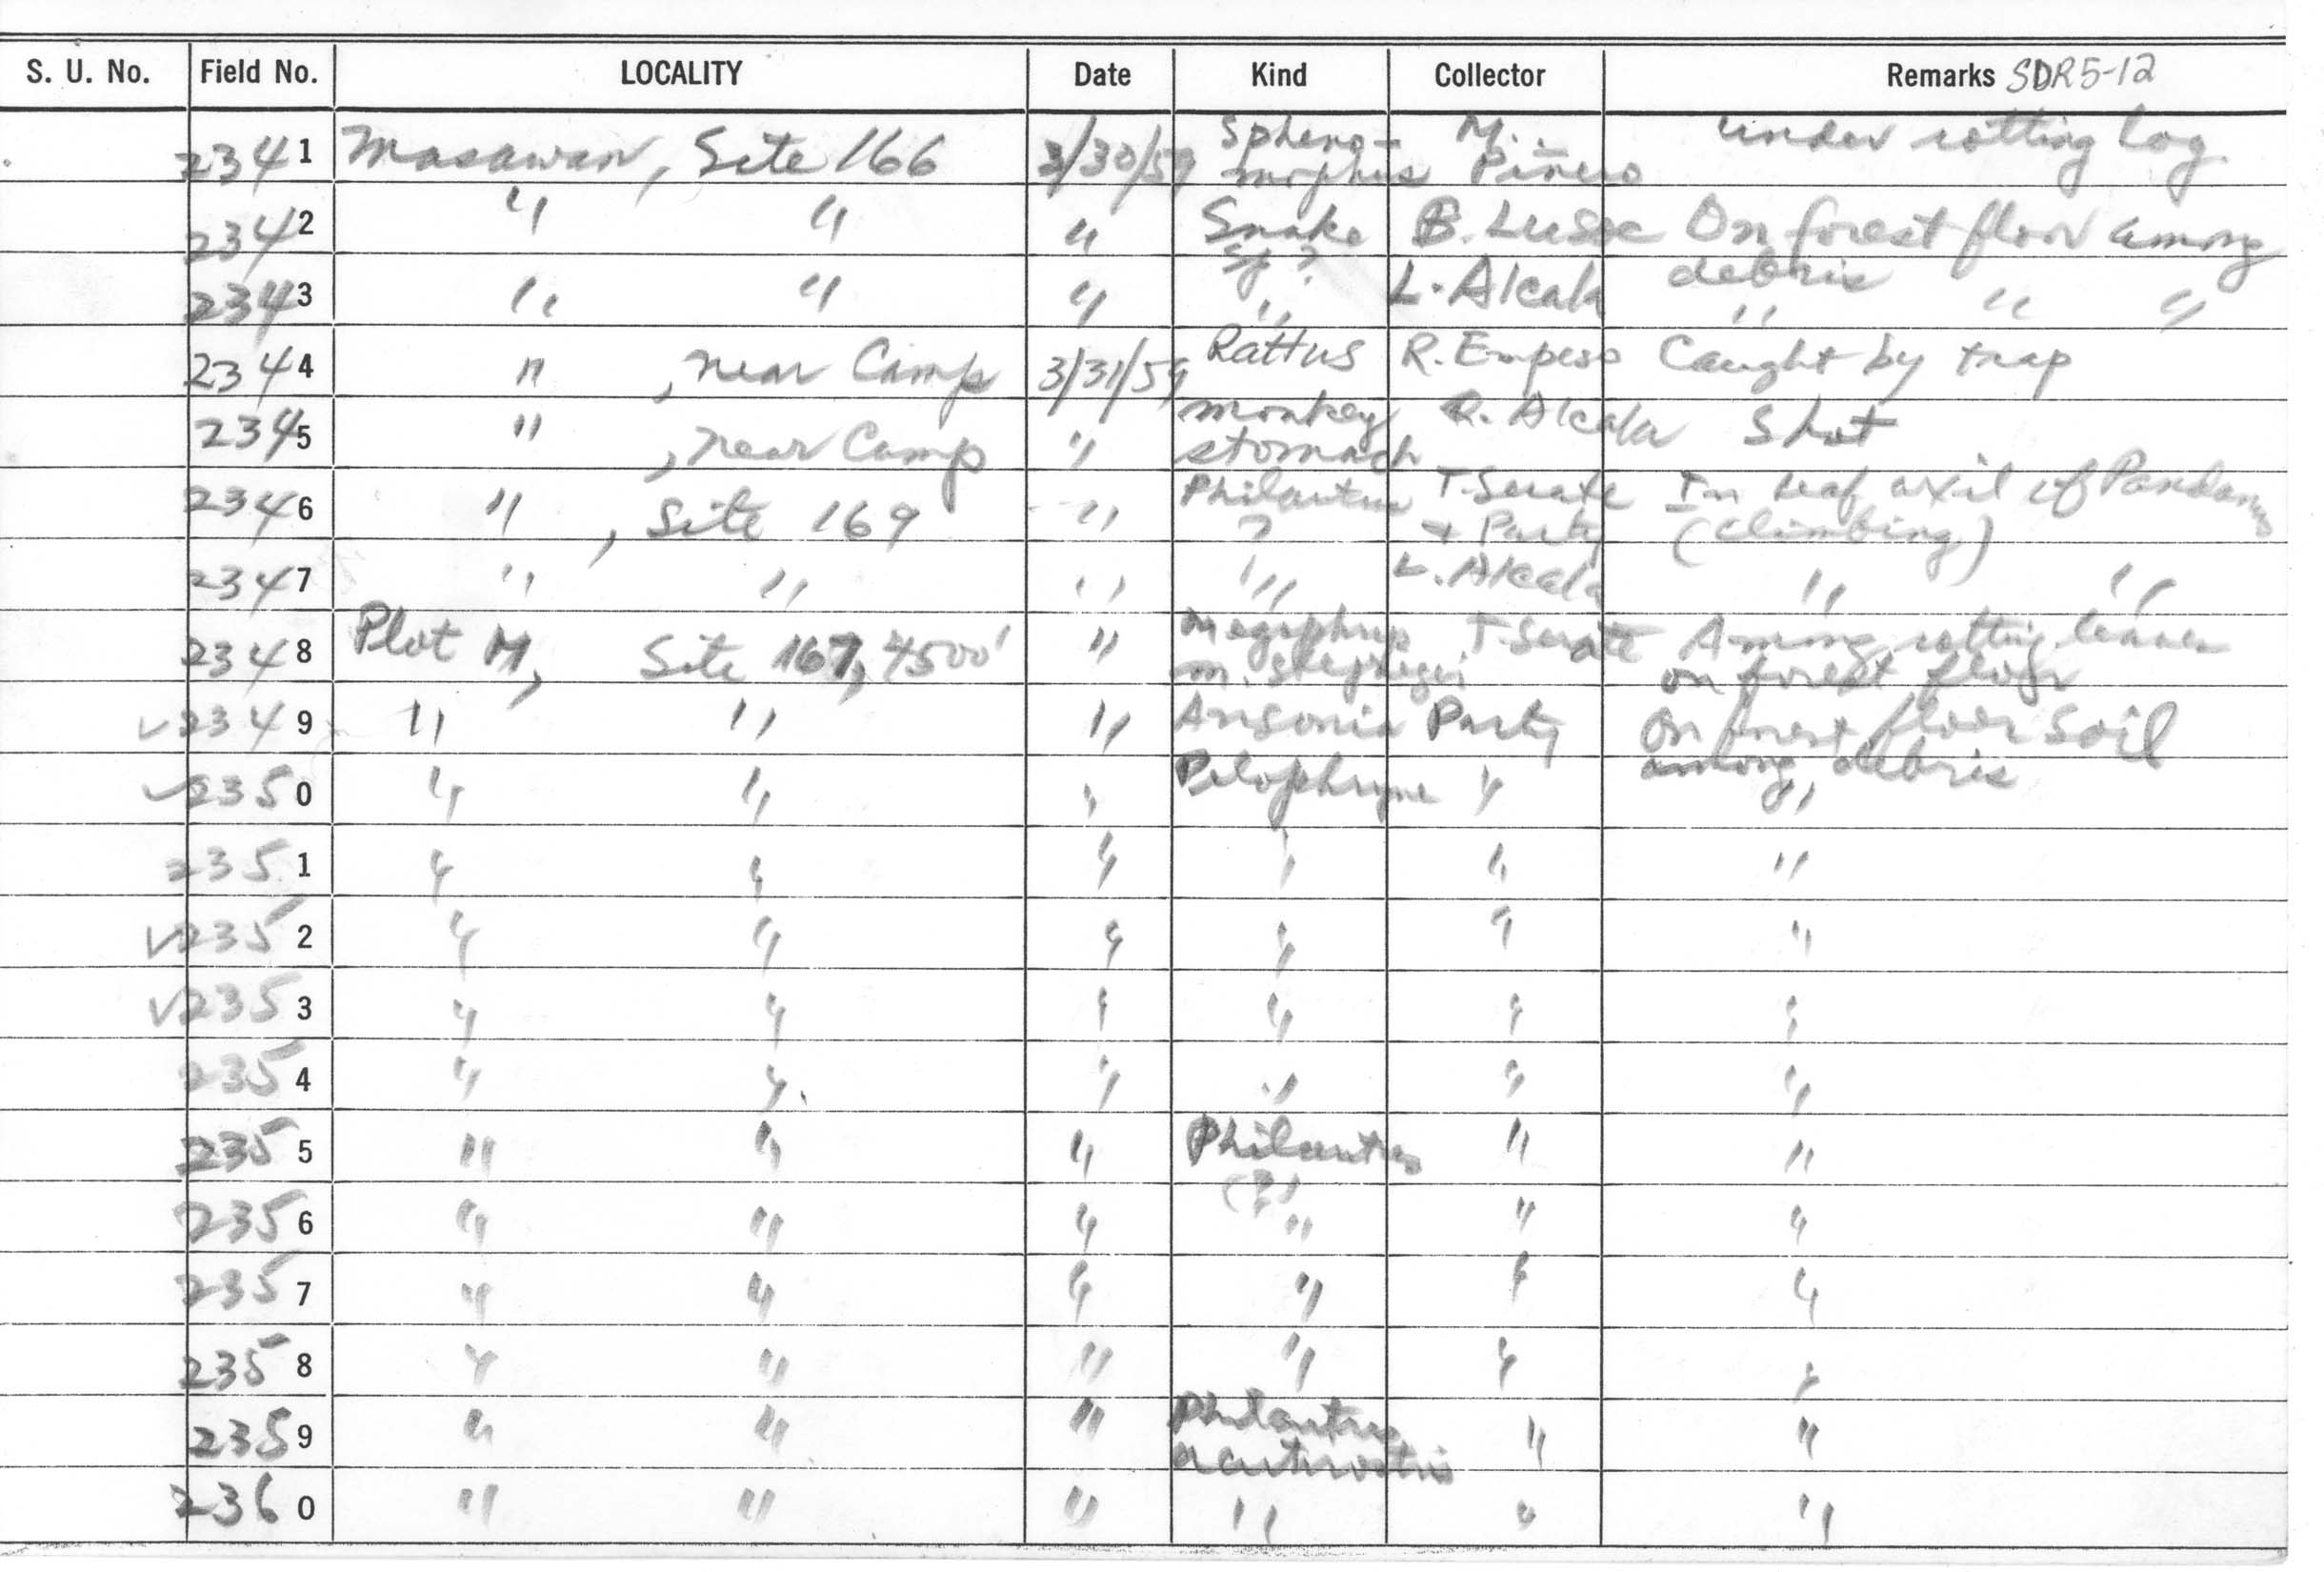 S. U. No. Field No. LOCALITY Date Kind Collector Remarks SDR5-12
2341 Masawan, Site 166 3/30/59 Spheno-morphus M. Piñero under rotting log.
2342 " " " Snake sp? B. Lusoc On forest floor among debris
2343 " " " " L. Alcala " " "
2344 " , near Camp 3/31/59 Rattus R. Empeso Caught by trap
2345 " , near Camp " monkey stomach R. Alcala Shot
2346 " , Site 169 " Philautus ? T. Serate + Party In leaf axil of Pandanus (climbing)
2347 " " " " L. Alcala " "
2348 Plot M, Site 167, 4500' " Megophrys m. stejnegeri T. Serate Among rotting leaves on forest floor
✓2349 " " " Ansonia Party On forest floor soil among debris
✓2350 " " " Pelophryne " "
2351 " " " " " "
✓2352 " " " " " "
✓2353 " " " " " "
2354 " " " " " "
2355 " " " Philautus (?) " "
2356 " " " " " "
2357 " " " " " "
2358 " " " " " "
2359 " " " Philautus " "
2360 " " " " " "